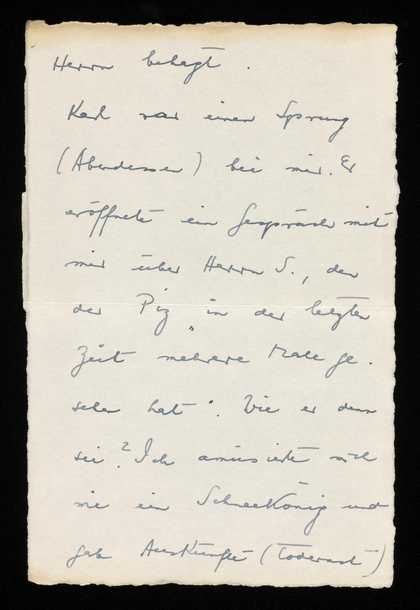 Herrn behagt.
Karl war einen Sprung
(Abendessen) bei mir. Er
eröffnete ein Gespräch mit
mir über Herrn S., den
der Piz „in der letzten
Zeit mehrere Male ge-
sehen hat“. Wie er denn
sei? Ich amüsierte mich
wie ein Schneekönig und
gab Auskünfte (Todernst)